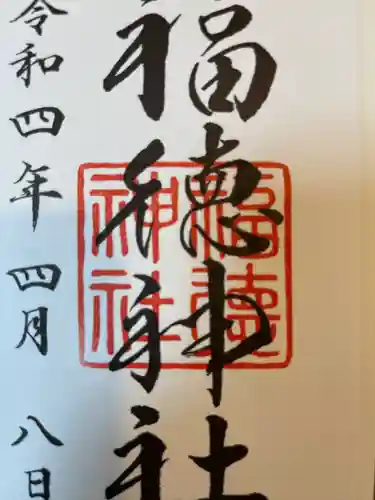 福徳神社
令和四年四月八日
福徳神社